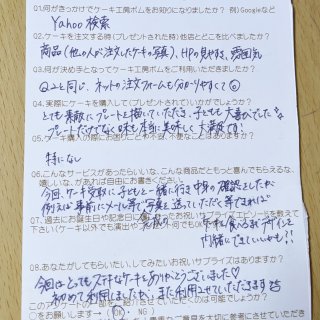 01.何がきっかけでケーキ工房ボムをお知りになりましたか？ 例）Googleなど
Yahoo 検索
02.ケーキを注文する時(プレゼントされた時)他店とどこを比べましたか？
商品(他の人が注文したケーキの写真)、HPの見やすさ、雰囲気
03.何が決め手となってケーキ工房ボムをご利用いただきましたか？
Q2と同じ、ネットの注文フォームも分かりやすくて◎
04.実際にケーキを購入して(プレゼントされて)いかがでしたか？
とても素敵にプレートを描いていただき、子どもも大喜びでした
プレートだけでなく味も本当に美味しく大満足です！
05.ケーキ購入の際にお困りごとや不満、不便なことはありますか？
特になし
06.こんなサービスがあったらいいな、こんな商品だともっと喜んでもらえるな、
嬉しいな、があれば自由にお書きください。
今回、ケーキ受取に子どもと一緒に行き中身の確認をしたが
例えば事前にメール等で写真を送っていただく等できれば
07.過去にお誕生日や記念日に
お祝いサプライズエピソードを教えて
下さい(ケーキ以外でも演出や
食べるまでデザインを
内緒にできていいかも!!
08.あなたがしてもらいたい、してみたいお祝いサプライズはありますか？
今回はとってもステキなケーキをありがとうございました♡
初めて利用しましたが、また利用させていただきます
このアンケートの一部をご紹介させていただくのは可能でしょうか？
○をお願いします→ (OK ・ NG)